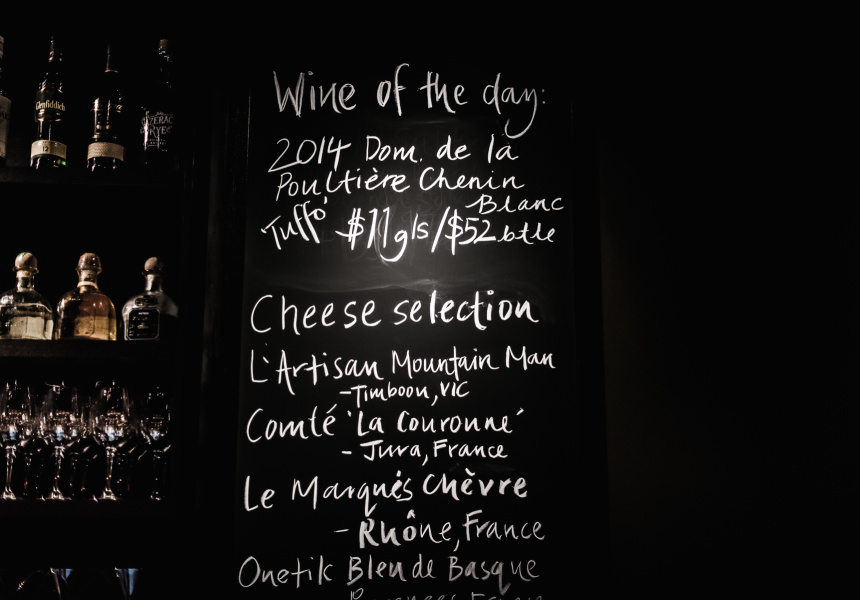 Glenfiddich
12
SAZERAC
RYE
Wine of the day:
2014 Dom. de la
Poultière Chenin
Blanc
Tuffó $11gls/$52btle
Cheese selection
L'Artisan Mountain Man
-Timboon, VIC
Comté 'La Couronne'
- Jura, France
Le Marquis Chèvre
- Rhône, France
Onetik Bleu de Basque